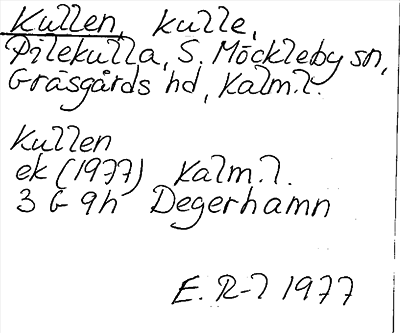 Kullen, kulle,
Pilekulla, S. Möckleby sn,
Gräsgårds hd, Kalm.l.
Kullen
ek (1977) Kalm.l.
3 G 9h Degerhamn
E. R-l 1977